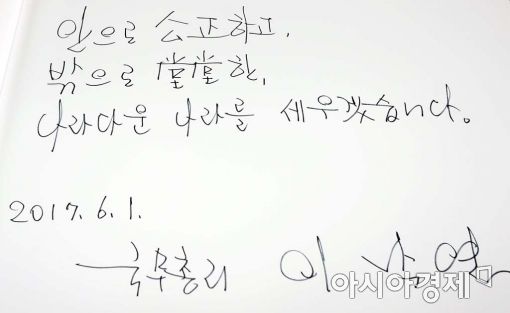 안으로 公正하고,
밖으로 堂堂한,
나라다운 나라를 세우겠습니다.
2017. 6. 1.
국무총리 이낙연
아시아경제